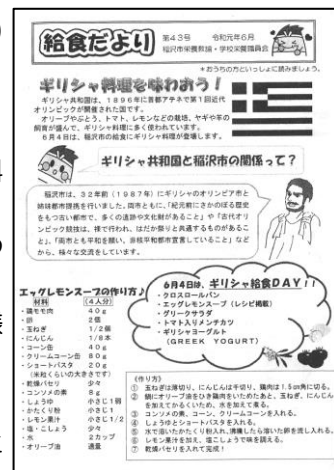 給食だより
第43号 令和元年6月
稲沢市栄養教諭・学校栄養職員会
*おうちの方といっしょに読みましょう。
ギリシャ料理を味わおう!
ギリシャ共和国は、1896年に首都アテネで第1回近代
オリンピックが開催された国です。
オリーブやぶどう、トマト、レモンなどの栽培、ヤギや羊の
飼育が盛んで、ギリシャ料理に多く使われています。
6月4日は、稲沢市の給食にギリシャ料理が登場します。
ギリシャ共和国と稲沢市の関係って?
稲沢市は、32年前(1987年)にギリシャのオリンピア市と
姉妹都市提携を行いました。両市ともに、「紀元前にさかのぼる歴史
をもつ古い都市で、多くの遺跡や文化財があること」や「古代オリ
ンピック競技は、裸で行われ、はだか祭りと共通するものがあるこ
と」、「両市とも平和を願い、非核平和都市宣言していること」など
から、様々な交流をしています。
エッグレモンスープの作り方♪
材料 (4人分)
・鶏モモ肉 40g
・卵 2個
・玉ねぎ 1/2個
・にんじん 1/8本
・コーン缶 40g
・クリームコーン缶 80g
・ショートパスタ 20g
(米粒くらいの大きさです)
・乾燥パセリ 少々
・コンソメの素 8g
・しょうゆ 小さじ1弱
・かたくり粉 小さじ1
・レモン果汁 小さじ1/2
・塩・こしょう 少々
・水 2カップ
・オリーブ油 適量
6月4日は、ギリシャ給食DAY!!
・クロスロールパン
・エッグレモンスープ(レシピ掲載)
・グリークサラダ
・トマト入りメンチカツ
・ギリシャヨーグルト
(GREEK YOGURT)
《作り方》
① 玉ねぎは薄切り、にんじんは千切り、鶏肉は1.5cm角に切る。
② 鍋にオリーブ油をひき鶏肉をいためたあと、玉ねぎ、にんじん
を加えてかるくいため、水を加えて煮る。
③ コンソメの素、コーン、クリームコーンを入れる。
④ しょうゆとショートパスタを入れる。
⑤ 水で溶いたかたくり粉入れ、沸騰したら溶いた卵を流し入れる。
⑥ レモン果汁を加え、塩こしょうで味を調える。
⑦ 乾燥パセリを入れて完成!